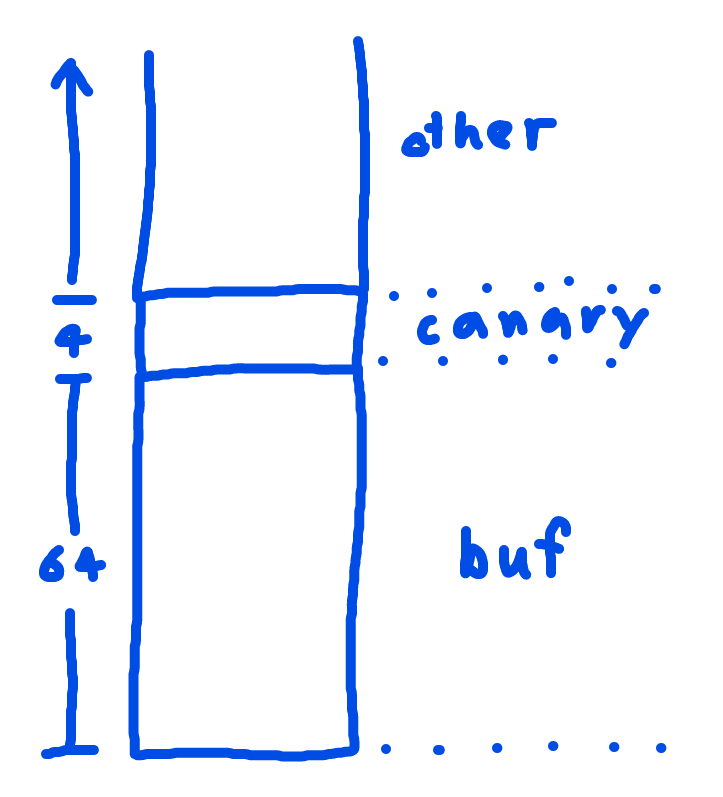 other
4
canary
64
buf